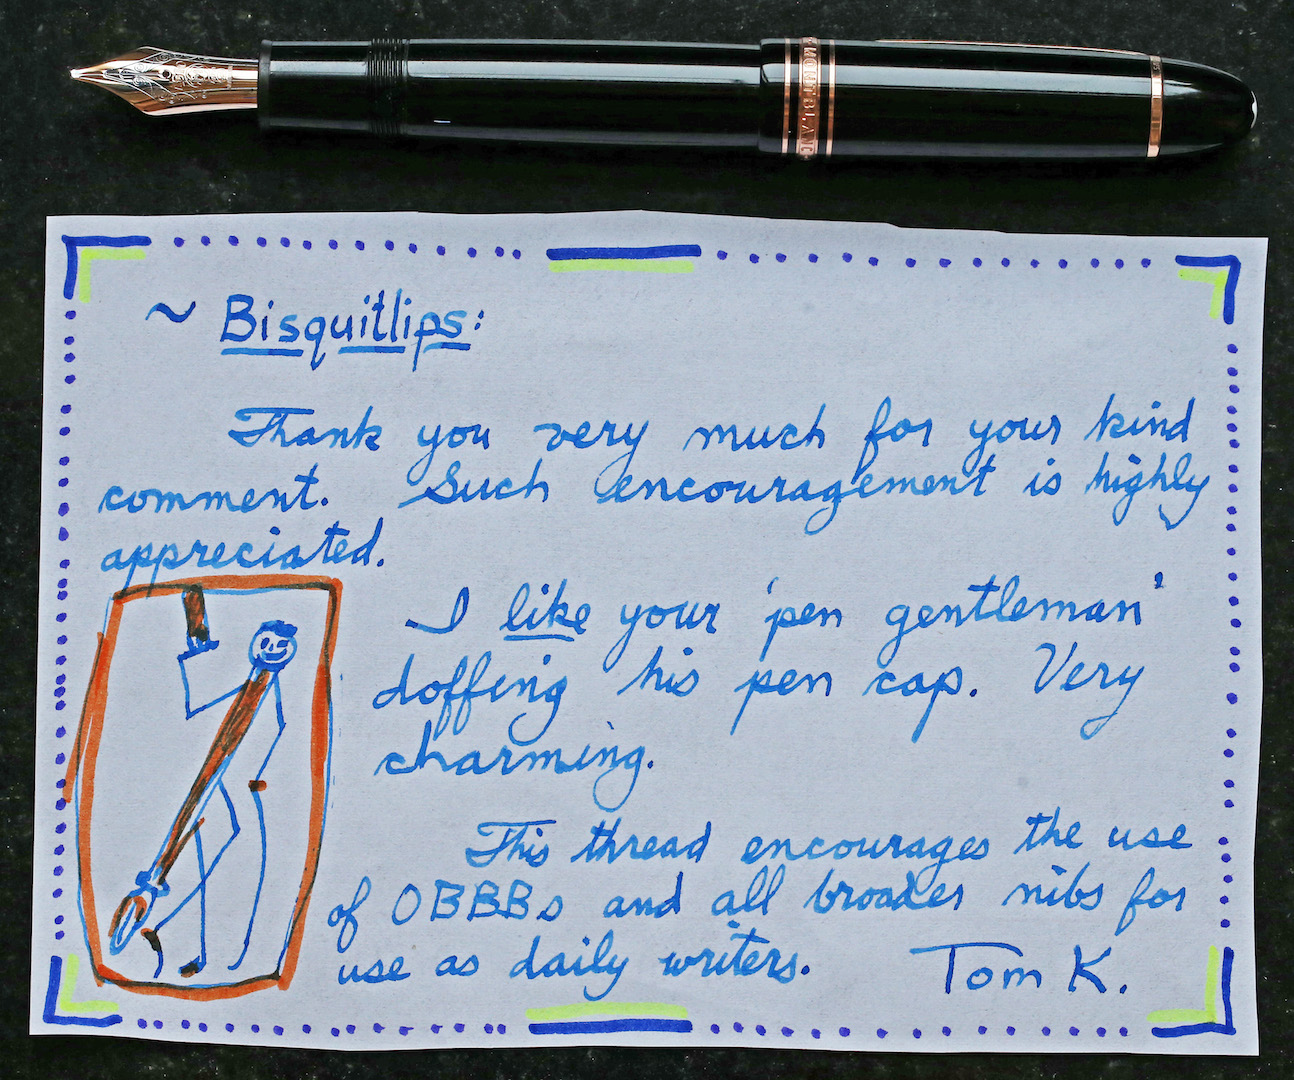 MONTBLANC
~ Bisquitlips:
Thank you very much for your kind
comment. Such encouragement is highly
appreciated.
I like your 'pen gentleman'
doffing his pen cap. Very
charming.
This thread encourages the use
of OBBBs and all broader nibs for
use as daily writers. Tom K.